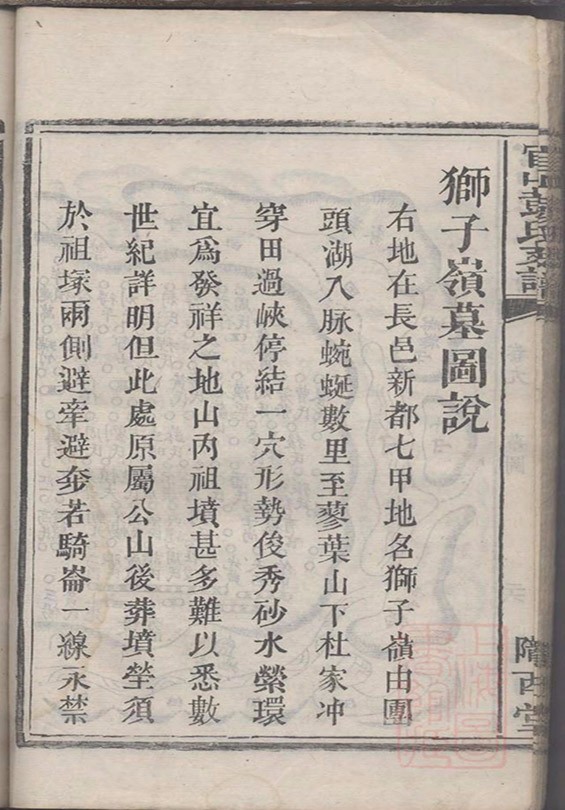 獅子嶺墓圖說
右地在長邑新都七甲地名獅子嶺由團
頭湖入脉蜿蜒數里至蓼葉山下杜家冲
穿田過峽停結一穴形勢俊秀砂水縈環
宜爲發祥之地山內祖墳甚多難以悉數
世紀詳明但此處原屬公山後葬墳塋須
於祖塚兩側避牽避奔若騎崙一線永禁
彭氏支譜
隴西堂